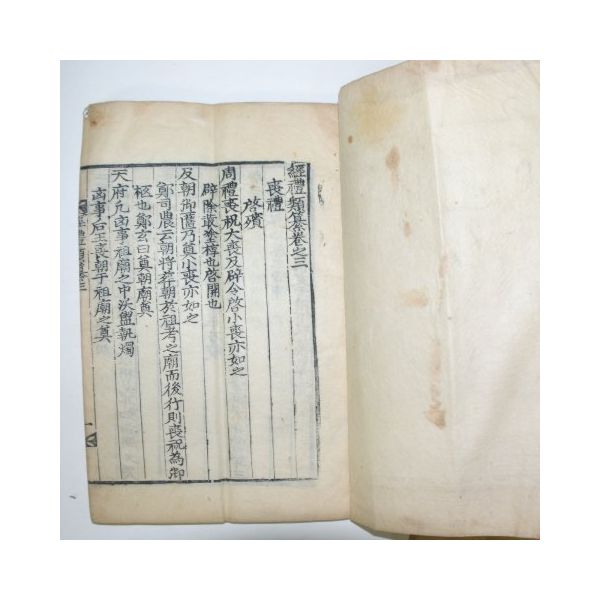 經禮類纂卷之三
喪禮
啓殯
周禮喪祝大喪及辟令啓小喪亦如之
辟除菆塗椁也啓開也
反朝御匶乃奠小喪亦如之
鄭司農云朝將葬朝於祖考之廟而後行則喪祝為御
柩也鄭玄曰奠朝廟奠
天府凡凶事祖廟之中沃盥執燭
凶事后王喪朝于祖廟之奠